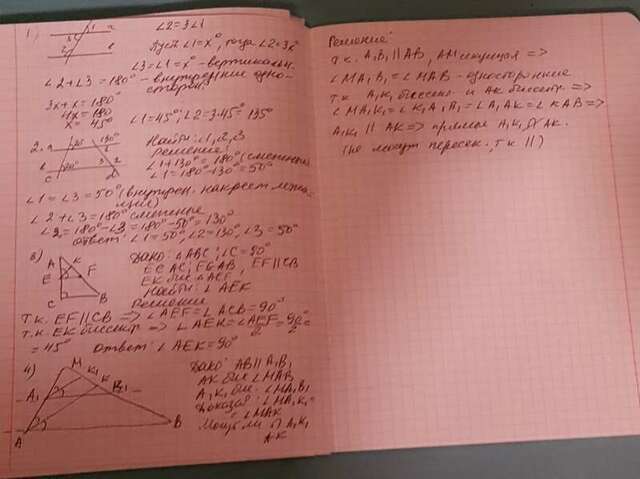 1)
∠2=3∠1
Пусть ∠1=x°, тогда ∠2=3x°
∠3=∠1=x° - вертикальн.
∠2+∠3=180° - внутренние одно-
сторон.
3x+x=180°
4x=180°
x=45°
∠1=45°; ∠2=3·45° 135°
2.
Найти: ∠1,2,3
Решение:
∠1+130°=180° (смежные)
∠1=180°-130°=50°
∠1=∠3=50° (внутрен. накрест лежа-
щие)
∠2+∠3=180° смежные
∠2=180°-∠3=180°-50°=130°
ответ: ∠1=50°, ∠2=130°, ∠3=50°
3)
A K
E F
C B
Дано: △ABC; ∠C=90°
E∈AC, F∈AB, EF||CB
EK бис
Найти: ∠AEK
Решение
т.к. EF||CB => ∠AEF=∠ACB=90°
т.к. EK биссектр => ∠AEK=∠AEF/2=90°/2=
=45° ответ: ∠AEK=90°
4)
M
K1
K
A1 B1
A B
Дано: AB||A1B1
AK бис ∠MAB
A1K1 бис. ∠MA1B1
∠MA1K1=
∠MAK
A1K1
AK
Решение:
т.к. A1B1||AB, AM секущая =>
∠MA1B1=∠MAB - односторонние
т.к. A1K1 биссект и AK биссектр. =>
∠MA1K1=∠K1A1B1=∠A1AK=∠KAB=>
A1K1 || AK=> прямые A1K1 и AK.
(не могут пересек., т.к ||)